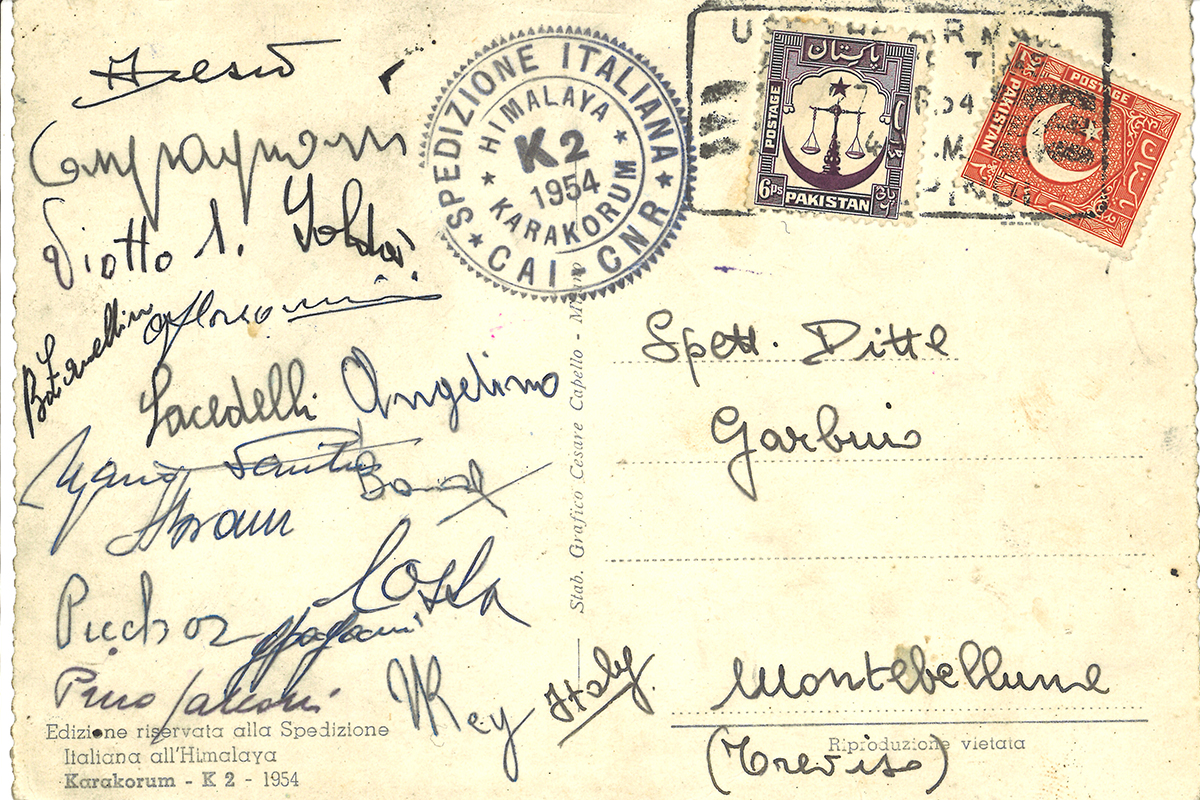 Desio
Compagnoni
Viotto
S. Soldà
Ubaldo
Floreanini
Lacedelli
Angelino
Bonatti
Abram
Puchoz
Costa
Pagani
Pino Gallotti
W Rey
Edizione riservata alla Spedizione
Italiana all'Himalaya
Karakorum - K 2 - 1954
SPEDIZIONE ITALIANA
CAI CNR
HIMALAYA
K2
1954
KARAKORUM
Stab. Grafico Cesare Capello - Milano
پاکستان
POSTAGE
6ps
PAKISTAN
POSTAGE
PAKISTAN
Spett. Ditte
Garbuio
Montebelluna
(Treviso)
Italy
Riproduzione vietata